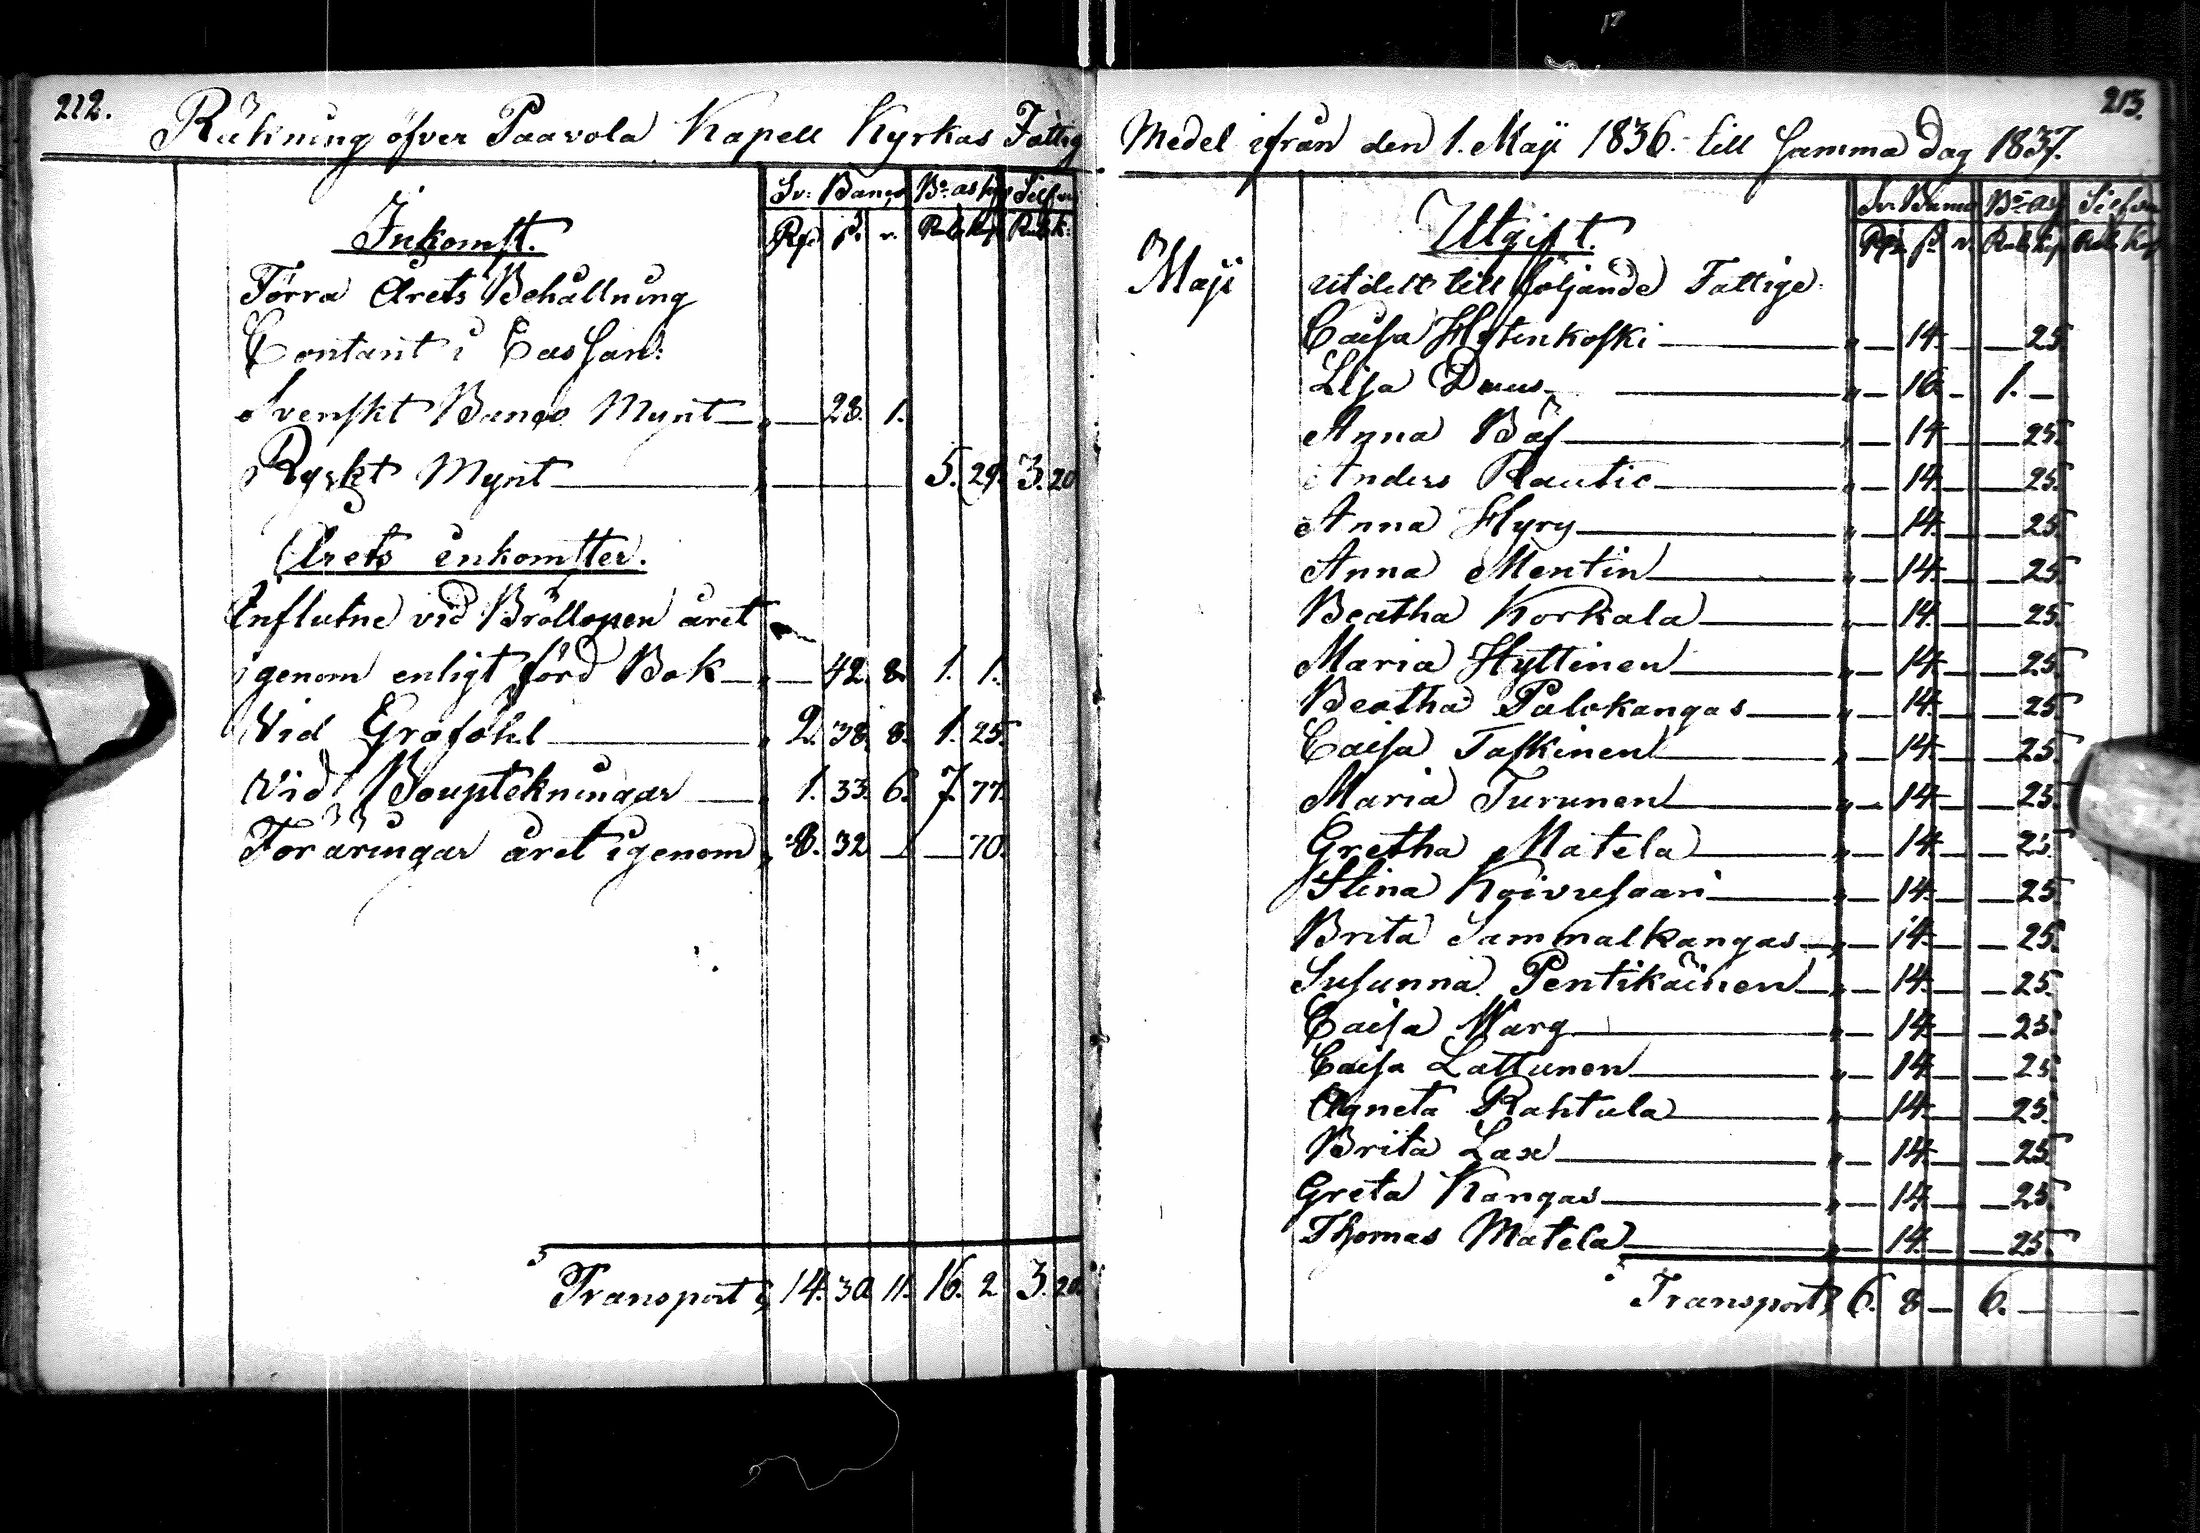 212.
Räkning öfver Paavola Kapell Kyrkas Fattig
Sv: Banco Bco ass Silfver
Rd s. r. Rub Kop Rub k:
Inkomst.
Förra Årets Behållning
Contant i Cassan:
Svenskt Banco Mynt „ — 28. 1.
Ryskt Mynt „ 5. 29. 3. 20
Årets inkomster.
Influtne vid Bröllopen året
igenom enligt förd Bok „ — 42. 8. 1. 1.
Vid Grafröhl „ 2. 38. 8. 1. 25.
Vid Bouptekningar „ 1. 33. 6. 7. 77.
Föräringar året igenom „ 8. 32 — — 70.
Transport „ 14. 30 11. 16. 2 3. 20.
213.
Medel ifrån den 1. Maji 1836. till samma dag 1837.
Sv. Banco Bco ass Silfver
Rd s. r. Rub kop Rub Kop
Utgift.
Maji utdelt till följande Fattige:
Caisa Hytinkoski „ — 14. — — 25.
Lisa Duus „ — 16 — 1. —
Anna Bäf „ — 14 — — 25.
Anders Rautio „ — 14. — — 25.
Anna Hyry „ — 14. — — 25.
Anna Mentin „ — 14. — — 25.
Beatha Korkala „ — 14. — — 25.
Maria Hyttinen „ — 14. — — 25.
Beatha Palokangas „ — 14. — — 25.
Caisa Taskinen „ — 14. — — 25.
Maria Turunen „ — 14. — — 25.
Gretha Matela „ — 14. — — 25.
Stina Koivusaari „ — 14. — — 25.
Brita Sammalkangas „ — 14. — — 25.
Susanna Pentikäinen „ — 14. — — 25.
Caisa Warg „ — 14. — — 25.
Caisa Lattunen „ — 14. — — 25.
Agneta Rahtula „ — 14. — — 25.
Brita Lax „ — 14. — — 25.
Greta Kangas „ — 14. — — 25.
Thomas Matela „ — 14. — — 25.
Transport „ 6. 8 — 6. —